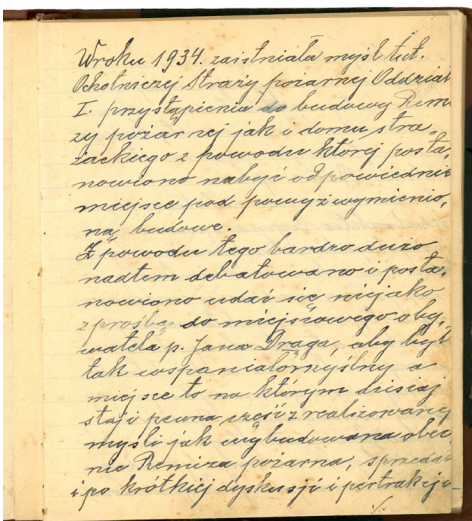 W roku 1934. zaistniała myśl tut.
Ochotniczej Straży pożarnej Oddział
I. przystąpienia do budowy Remi
zy pożarnej jak i domu stra„
żackiego z powodu której posta„
nowiono nabyć odpowiednie
miejsce pod powyż wymienio„
ną budowę.
Z powodu tego bardzo dużo
nadtem debatowano i posta„
nowiono udać się niejako
z prośbą do miejscowego oby„
watela p. Jana Draga, aby był
tak wspaniałomyślny a
miejsce to na którym dzisiaj
stoji pewna część zrealizowanej
myśli jak wybudowana obec
nie Remiza pożarna, sprzedał
i po krótkiej dyskusji i pertrakcjo-
./.